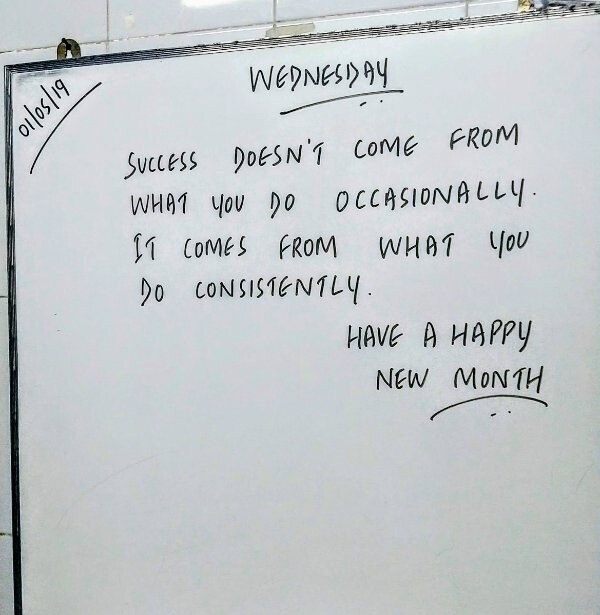 01/05/19
WEDNESDAY
SUCCESS DOESN'T COME FROM
WHAT YOU DO OCCASIONALLY.
IT COMES FROM WHAT YOU
DO CONSISTENTLY.
HAVE A HAPPY
NEW MONTH